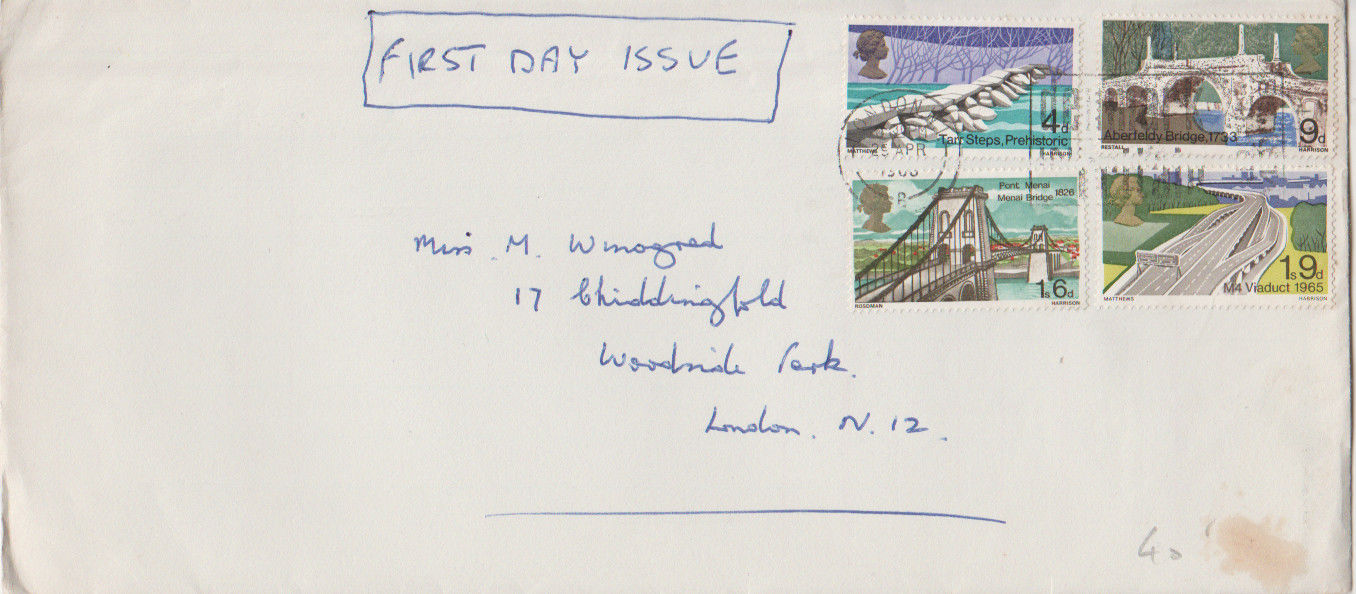 FIRST DAY ISSUE
4d
Tarr Steps, Prehistoric
MATTHEWS HARRISON
Aberfeldy Bridge, 1733
9d
RESTALL HARRISON
NDON
29 APR
Pont Menai
Menai Bridge 1826
1s6d
ROSDMAN HARRISON
1s9d
M4 Viaduct 1965
MATTHEWS HARRISON
Miss M. Winograd
17 Chiddingfold
Woodside Park.
London. N. 12.